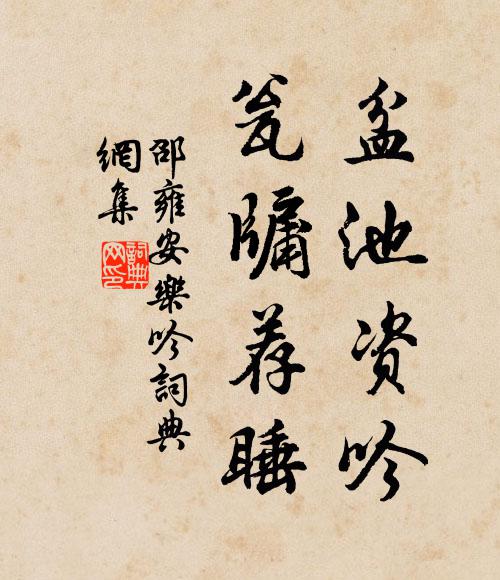 盆池资吟
瓮牖荐睡
邵雍安樂吟詞典
網集
詞典网印